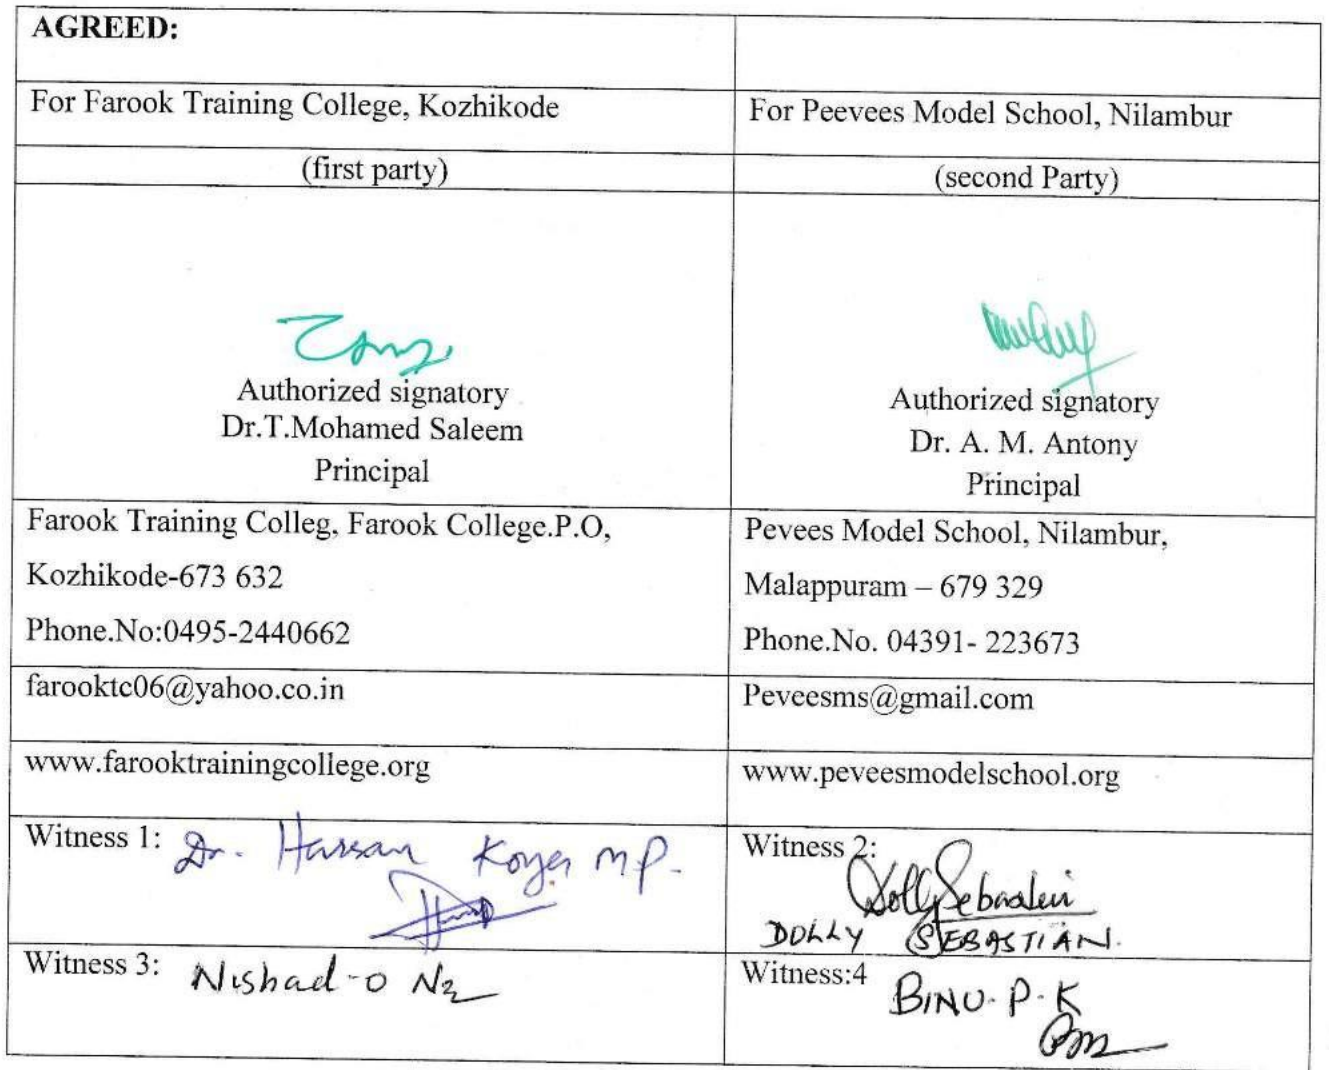 AGREED:
For Farook Training College, Kozhikode
For Peevees Model School, Nilambur
(first party)
(second Party)
Authorized signatory
Dr.T.Mohamed Saleem
Principal
Authorized signatory
Dr. A. M. Antony
Principal
Farook Training Colleg, Farook College.P.O,
Kozhikode-673 632
Phone.No:0495-2440662
Pevees Model School, Nilambur,
Malappuram – 679 329
Phone.No. 04391- 223673
farooktc06@yahoo.co.in
Peveesms@gmail.com
www.farooktrainingcollege.org
www.peveesmodelschool.org
Witness 1: Dr. Hassan Koya MP.
Witness 2:
Dolly Sebastian
DOLLY SEBASTIAN.
Witness 3: Nishad-O
Witness:4 BINU.P.K